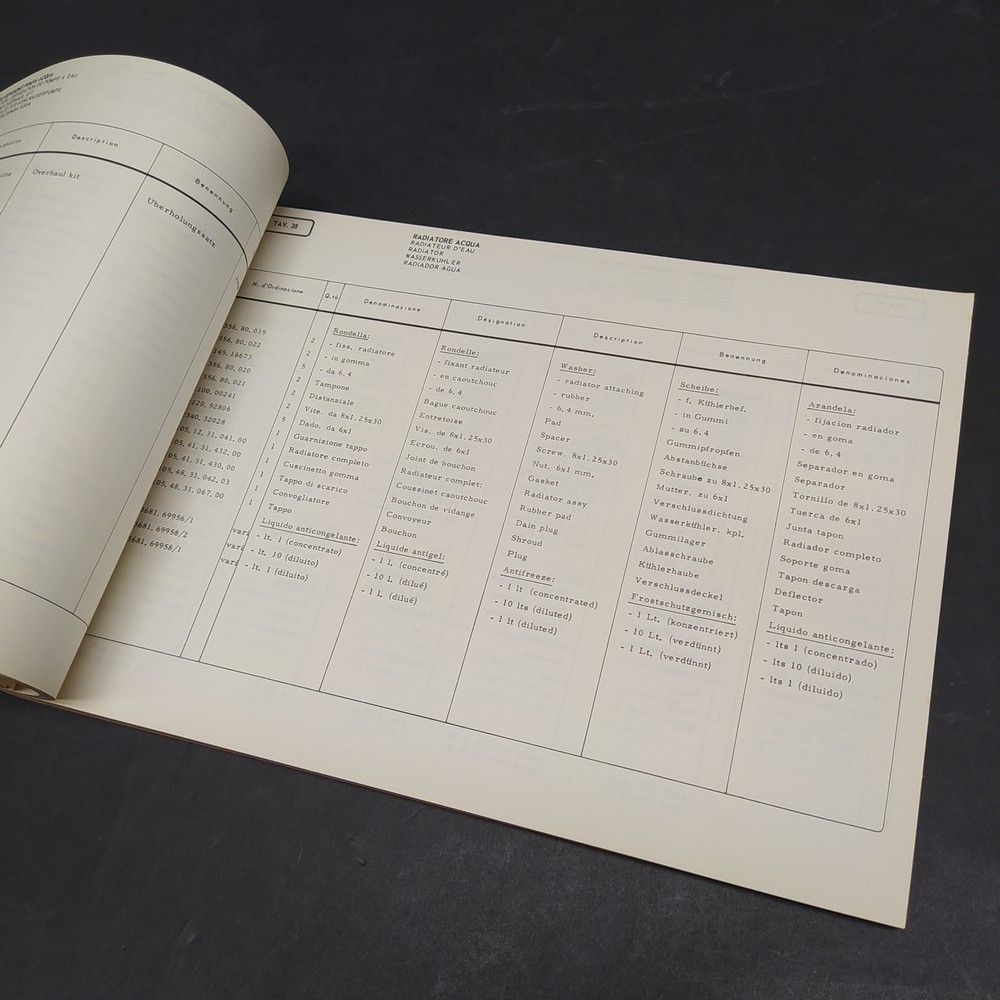 Description
Overhaul kit
Benennung
Überholungssatz
TAV. 38
RADIATORE ACQUA
RADIATEUR D'EAU
RADIATOR
WASSERKUHLER
RADIADOR AGUA
N. d'Ordinazione
356. 80. 019
356. 80. 022
145. 16673
356. 80. 020
356. 80. 021
100. 00241
120. 92806
340. 32028
105. 12. 31. 041. 00
105. 41. 31. 432. 00
105. 41. 31. 430. 00
105. 48. 31. 042. 03
105. 48. 31. 067. 00
3681. 69956/1
3681. 69958/2
3681. 69958/1
Q.tà
2
2
5
2
2
2
5
1
1
1
1
1
1
vari
vari
vari
Denominazione
Rondella:
- fiss. radiatore
- in gomma
- da 6,4
Tampone
Distanziale
Vite. da 8x1,25x30
Dado. da 6x1
Guarnizione tappo
Radiatore completo
Cuscinetto gomma
Tappo di scarico
Convogliatore
Tappo
Liquido anticongelante:
- lt. 1 (concentrato)
- lt. 10 (diluito)
- lt. 1 (diluito)
Désignation
Rondelle:
- fixant radiateur
- en caoutchouc
- de 6,4
Bague caoutchouc
Entretoise
Vis. de 8x1,25x30
Ecrou. de 6x1
Joint de bouchon
Radiateur complet:
Coussinet caoutchouc
Bouchon de vidange
Convoyeur
Bouchon
Liquide antigel:
- 1 l. (concentré)
- 10 l. (dilué)
- 1 l. (dilué)
Description
Washer:
- radiator attaching
- rubber
- 6,4 mm.
Pad
Spacer
Screw. 8x1,25x30
Nut. 6x1 mm.
Gasket
Radiator assy
Rubber pad
Dain plug
Shroud
Plug
Antifreeze:
- 1 lt (concentrated)
- 10 lts (diluted)
- 1 lt (diluted)
Benennung
Scheibe:
- f. Kühlerbef.
- in Gummi
- zu 6,4
Gummipfropfen
Abstanbüchse
Schraube zu 8x1,25x30
Mutter. zu 6x1
Verschlussdichtung
Wasserkühler. kpl.
Gummilager
Ablasschraube
Kühlerhaube
Verschlussdeckel
Frostschutzgemisch:
- 1 Lt. (konzentriert)
- 10 Lt. (verdünnt)
- 1 Lt. (verdünnt)
Denominaciones
Arandela:
- fijacion radiador
- en goma
- de 6,4
Separador en goma
Separador
Tornillo de 8x1,25x30
Tuerca de 6x1
Junta tapon
Radiador completo
Soporte goma
Tapon descarga
Deflector
Tapon
Liquido anticongelante:
- lts 1 (concentrado)
- lts 10 (diluido)
- lts 1 (diluido)